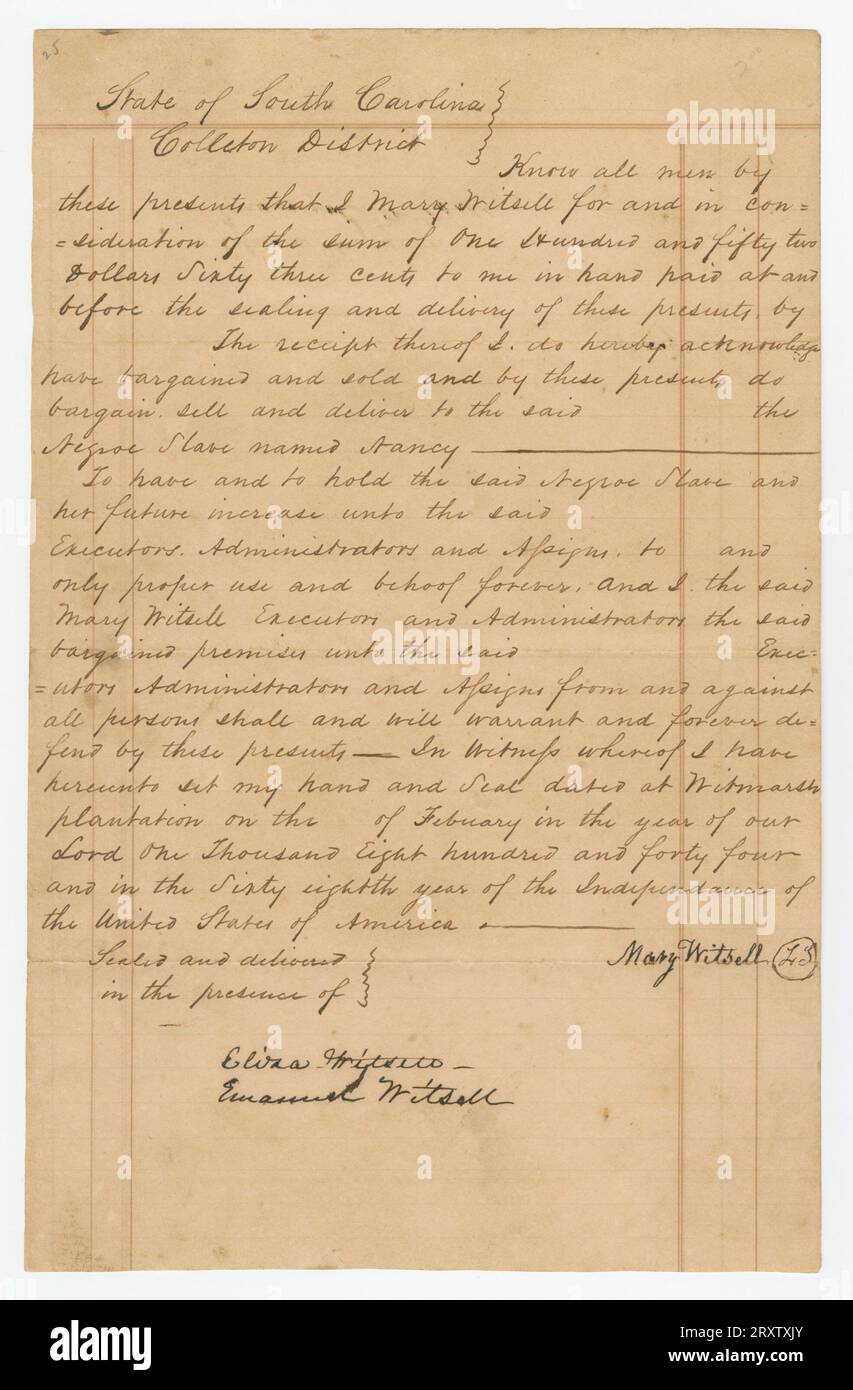 25
State of South Carolina
Colleton District
Know all men by
these presents that I Mary Witsell for and in con=
=sideration of the sum of One Hundred and fifty two
Dollars Sixty three cents to me in hand paid at and
before the sealing and delivery of these presents. by
The receipt thereof I. do hereby acknowledge
have bargained and sold and by these presents do
bargain. sell and deliver to the said the
Negroe Slave named Nancy
To have and to hold the said Negroe Slave and
her future increase unto the said
Executors. Administrators and Assigns. to and
only proper use and behoof forever. And I. the said
Mary Witsell Executors and Administrators the said
bargained premises unto the said Exec-
=utors Administrators and Assigns from and against
all persons shall and will warrant and forever de=
fend by these presents — In Witness whereof I have
hereunto set my hand and Seal dated at Witmarsh
plantation on the of Febuary in the year of our
Lord One Thousand Eight hundred and forty four
and in the Sixty eightth year of the Independance of
the United States of America
Sealed and delivered
Mary Witsell LS
in the presence of
Eliza Witsell
Emanuel Witsell
alamy
Image ID: 2RXTXJY
www.alamy.com